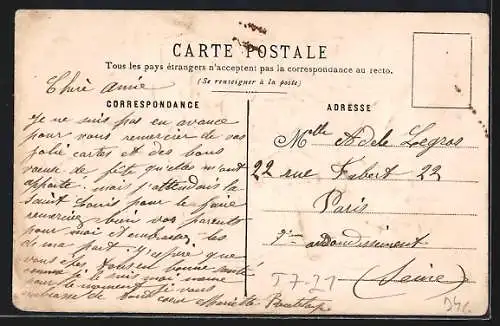 CARTE POSTALE
Tous les pays étrangers n'acceptent pas la correspondance au recto.
(Se renseigner à la poste)
CORRESPONDANCE
ADRESSE
Chère amie
Je ne suis pas en avance
pour vous remercier de vos
jolie cartes et des bons
de fête qu'elles m'ont
mais j'attendais la
Saint Louis pour le faire
remercier bien vos parents
pour moi et embrasser les
de ma part. J'espère que
vous êtes bonne santé
comme je le suis moi même
pour le moment je vous
embrasse de tout cœur Mariette
Melle Adele Legros
22 rue Fabert 22
Paris
7me arrondissement
(Seine)
57-21
J46